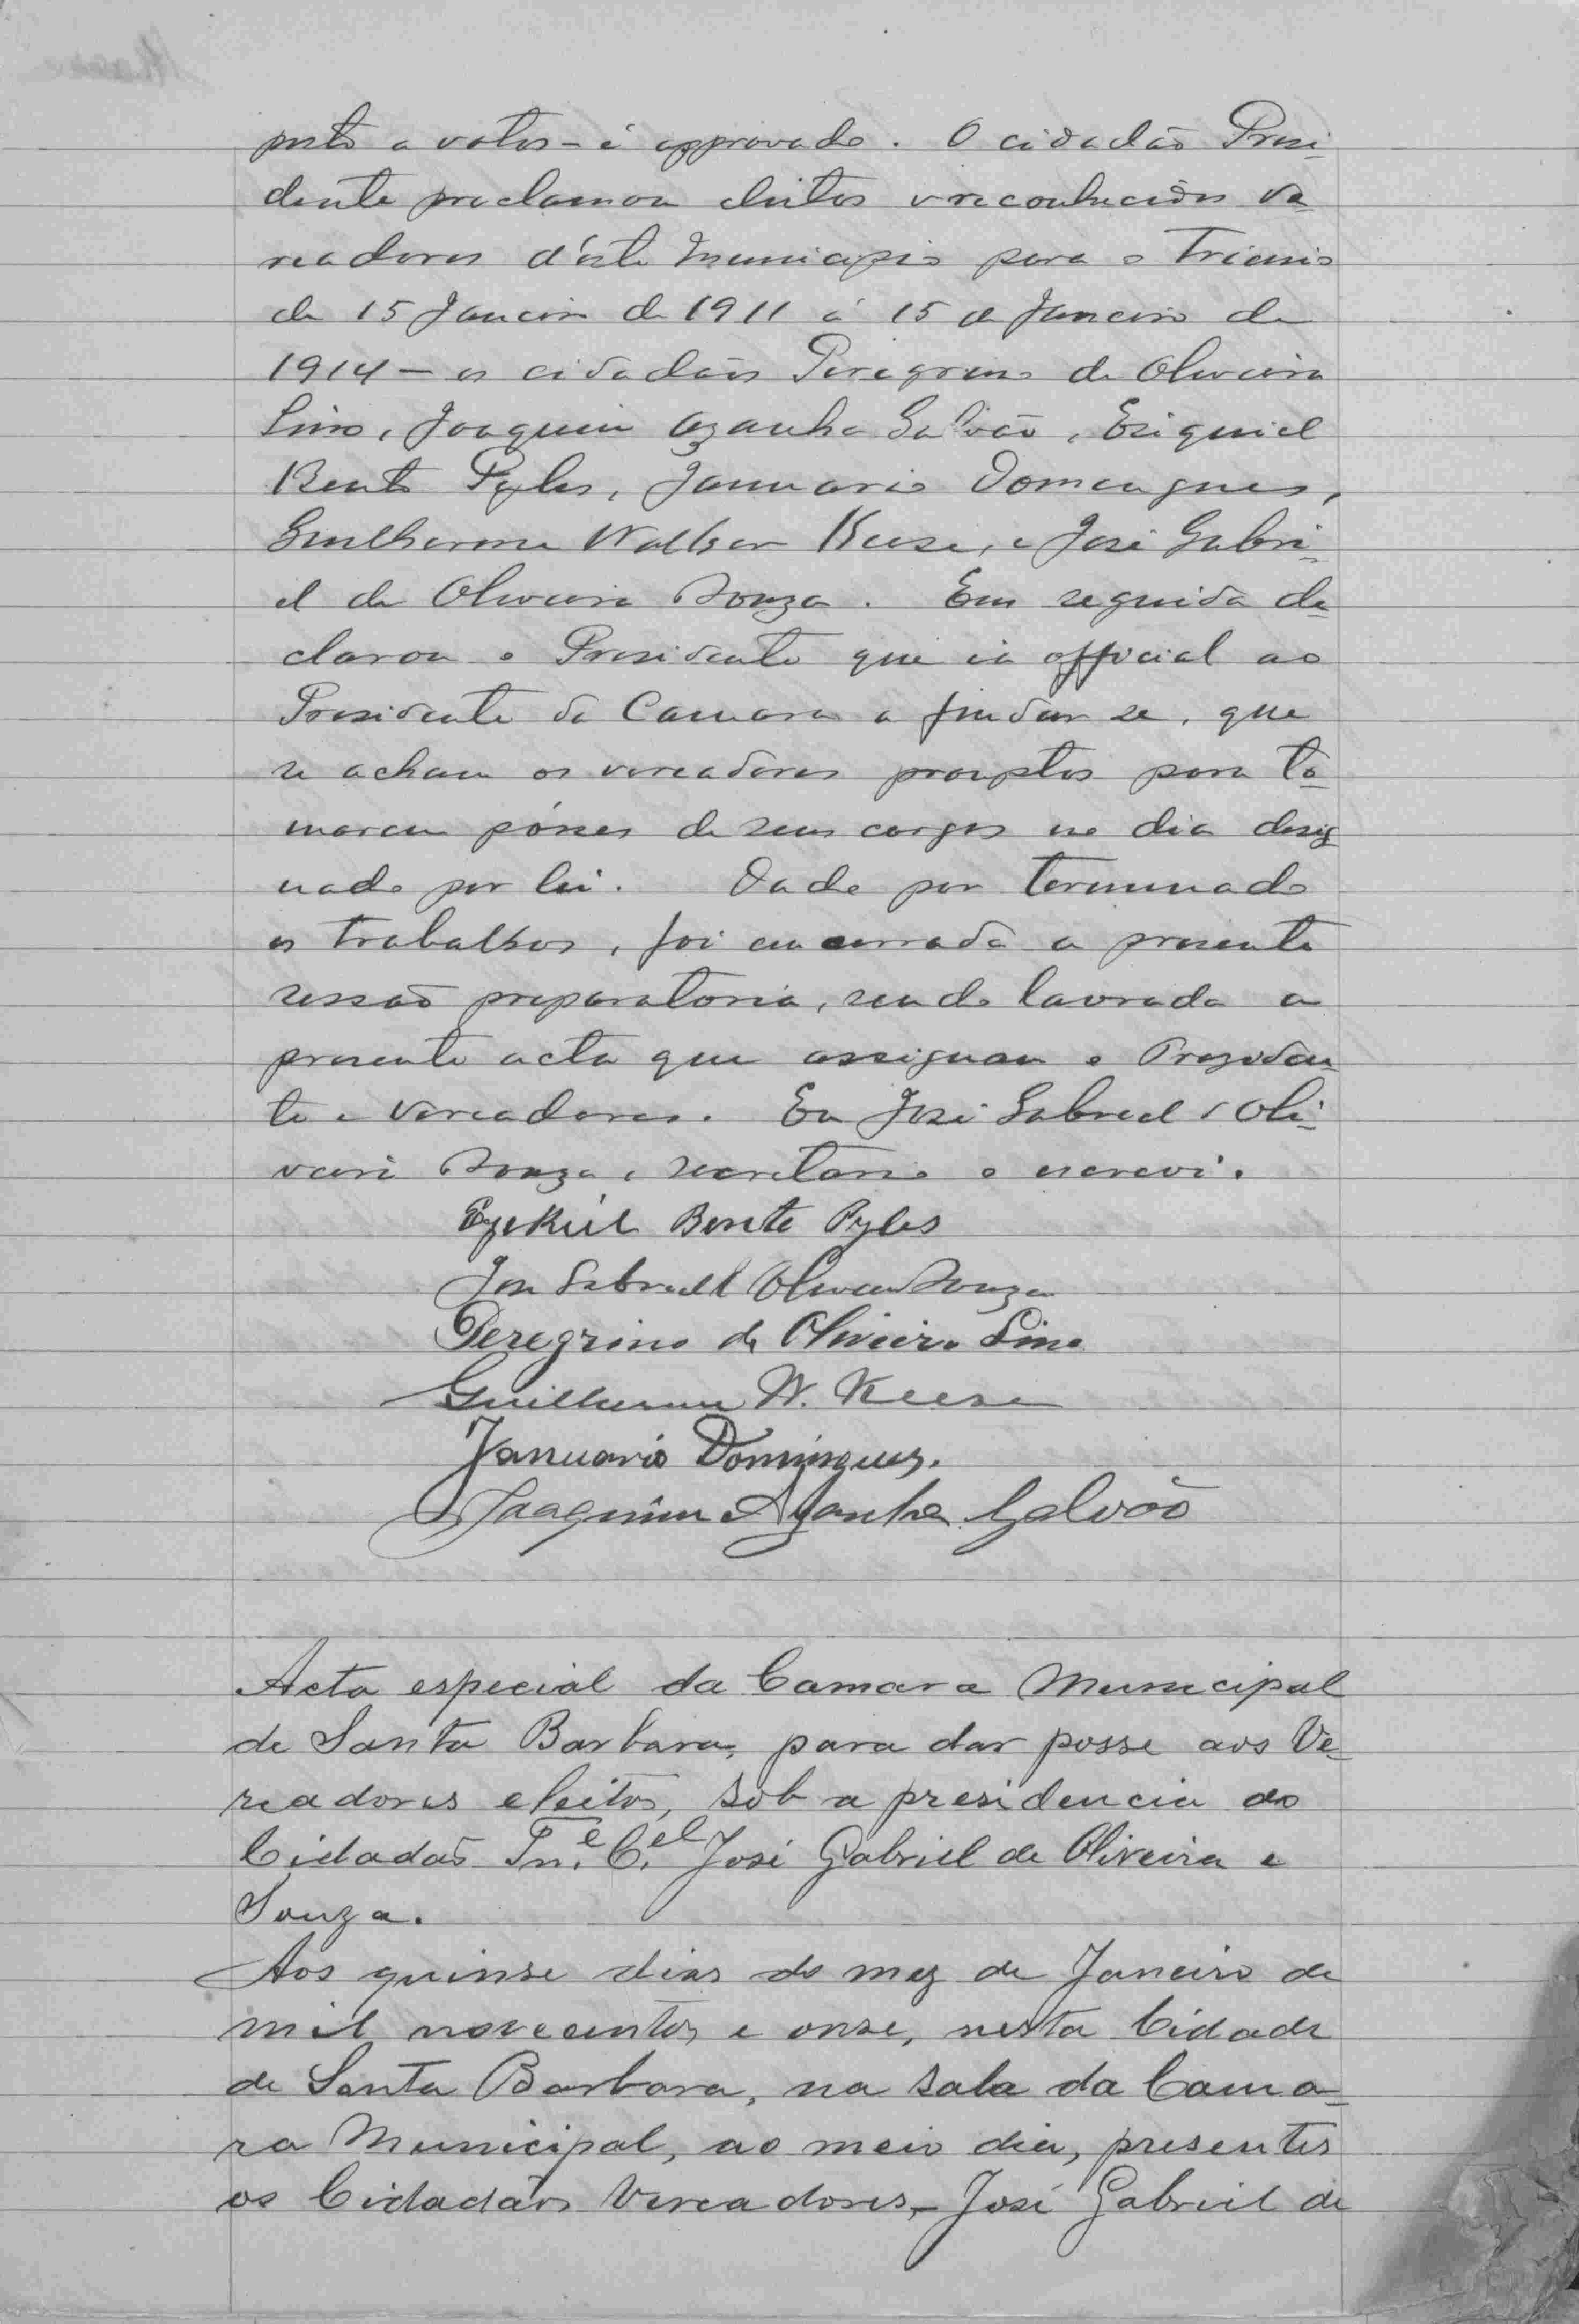 posto a votos - é approvado. O cidadão Presi-
dente proclamou eleitos e reconhecidos ve-
readores d'éste Municipio para o Trienio
de 15 Janeiro de 1911 á 15 de Janeiro de
1914 - os cidadãos Peregrino de Oliveira
Lino, Joaquim Azanha Galvão, Eziquiel
Bento Pyles, Januario Domingues,
Guilherme Walker Keese, e José Gabri-
el de Oliveira Souza. Em seguida de-
clarou o Presidente que ia official ao
Presidente da Camara a findar se, que
se acham os vereadores promptos para to-
marem pósses de seus cargos no dia desig-
nado por lei. Dado por terminado
os trabalhos, foi encerrada a presente
sessão preparatoria, sendo lavrada a
presente acta que assignam o Presiden-
te e vereadores. Eu José Gabriel d'Oli-
veira Souza, secretario o escrevi.
Ezekiel Bento Pyles
José Gabriel Oliveira Souza
Peregrino de Oliveira Lino
Guilherme W. Keese
Januario Domingues.
Joaquim Azanha Galvão
Acta especial da Camara Municipal
de Santa Barbara, para dar posse aos Ve-
readores eleitos, sob a presidencia do
Cidadão Tn.e C.el José Gabriel de Oliveira e
Souza.
Aos quinse dias do mez de Janeiro de
mil novecentos e onse, nesta Cidade
de Santa Barbara, na sala da Cama-
ra Municipal, ao meio dia, presentes
os Cidadãos Vereadores, - José Gabriel de